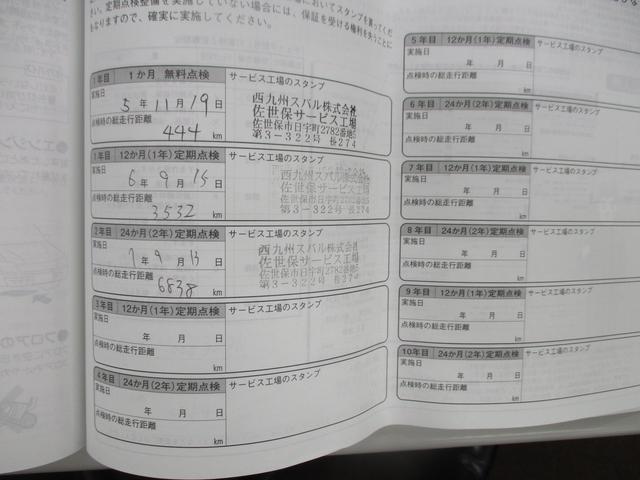 い。定期点検整備を実施していない場合には、保証を受ける権利を失うことに
なりますので、確実に実施してください。
1年目 1か月 無料点検 サービス工場のスタンプ
実施日
5年11月19日
点検時の総走行距離
444 km
西九州スバル株式会社
佐世保サービス工場
佐世保市日宇町2782番地5
第3-322号 長274
1年目 12か月(1年)定期点検 サービス工場のスタンプ
実施日
6年9月15日
点検時の総走行距離
3532 km
西九州スバル株式会社
佐世保サービス工場
佐世保市日宇町2782番地5
第3-322号 長274
2年目 24か月(2年)定期点検 サービス工場のスタンプ
実施日
7年9月13日
点検時の総走行距離
6838 km
西九州スバル株式会社
佐世保サービス工場
佐世保市日宇町2782番地5
第3-322号 長274
3年目 12か月(1年)定期点検 サービス工場のスタンプ
実施日
年 月 日
点検時の総走行距離
km
4年目 24か月(2年)定期点検 サービス工場のスタンプ
実施日
年 月 日
点検時の総走行距離
km
5年目 12か月(1年)定期点検 サービス工場のスタンプ
実施日
年 月 日
点検時の総走行距離
km
6年目 24か月(2年)定期点検 サービス工場のスタンプ
実施日
年 月 日
点検時の総走行距離
km
7年目 12か月(1年)定期点検 サービス工場のスタンプ
実施日
年 月 日
点検時の総走行距離
km
8年目 24か月(2年)定期点検 サービス工場のスタンプ
実施日
年 月 日
点検時の総走行距離
km
9年目 12か月(1年)定期点検 サービス工場のスタンプ
実施日
年 月 日
点検時の総走行距離
km
10年目 24か月(2年)定期点検 サービス工場のスタンプ
実施日
年 月 日
点検時の総走行距離
km